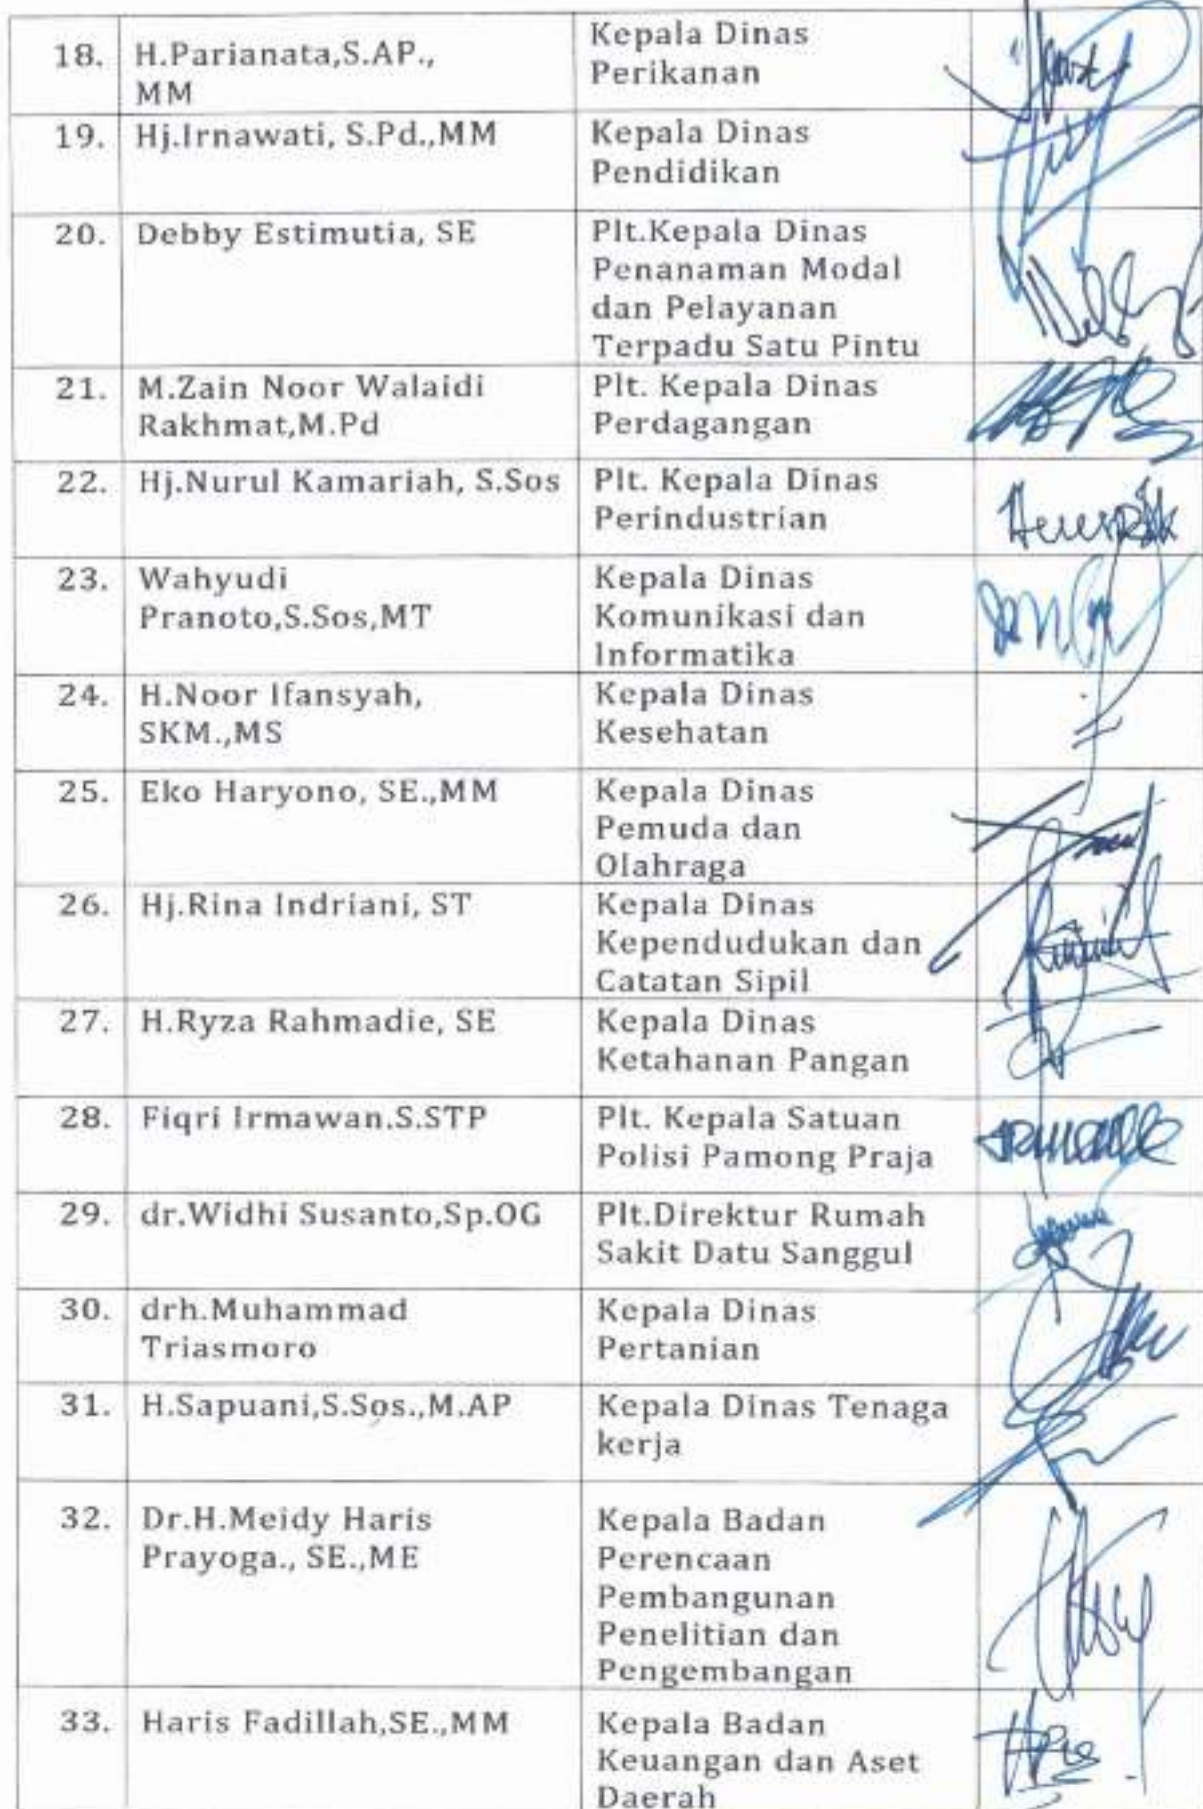 18. H.Parianata,S.AP.,
MM
Kepala Dinas
Perikanan
19. Hj.Irnawati, S.Pd.,MM
Kepala Dinas
Pendidikan
20. Debby Estimutia, SE
Plt.Kepala Dinas
Penanaman Modal
dan Pelayanan
Terpadu Satu Pintu
21. M.Zain Noor Walaidi
Rakhmat,M.Pd
Plt. Kepala Dinas
Perdagangan
22. Hj.Nurul Kamariah, S.Sos
Plt. Kepala Dinas
Perindustrian
23. Wahyudi
Pranoto,S.Sos,MT
Kepala Dinas
Komunikasi dan
Informatika
24. H.Noor Ifansyah,
SKM.,MS
Kepala Dinas
Kesehatan
25. Eko Haryono, SE.,MM
Kepala Dinas
Pemuda dan
Olahraga
26. Hj.Rina Indriani, ST
Kepala Dinas
Kependudukan dan
Catatan Sipil
27. H.Ryza Rahmadie, SE
Kepala Dinas
Ketahanan Pangan
28. Fiqri Irmawan.S.STP
Plt. Kepala Satuan
Polisi Pamong Praja
29. dr.Widhi Susanto,Sp.OG
Plt.Direktur Rumah
Sakit Datu Sanggul
30. drh.Muhammad
Triasmoro
Kepala Dinas
Pertanian
31. H.Sapuani,S.Sos.,M.AP
Kepala Dinas Tenaga
kerja
32. Dr.H.Meidy Haris
Prayoga., SE.,ME
Kepala Badan
Perencaan
Pembangunan
Penelitian dan
Pengembangan
33. Haris Fadillah,SE.,MM
Kepala Badan
Keuangan dan Aset
Daerah